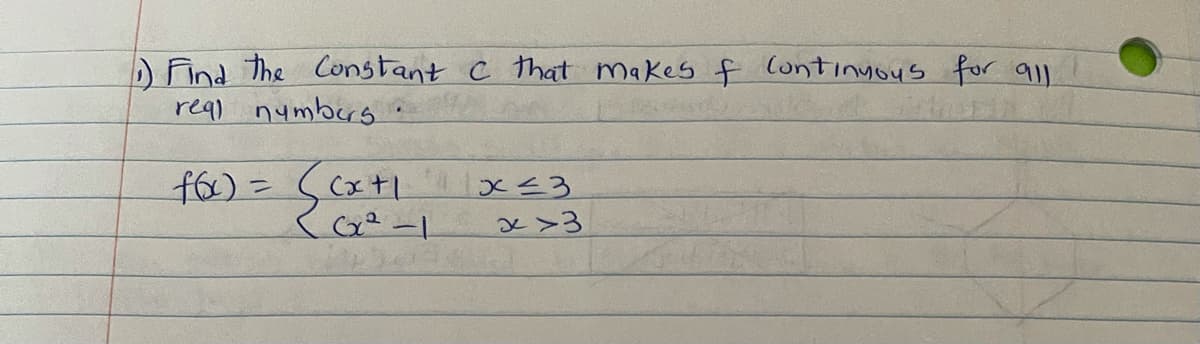 1) Find the Constant c that makes f continuous for all
real numbers.
f(x) = { cx+1 x ≤ 3
cx² -1 x >3